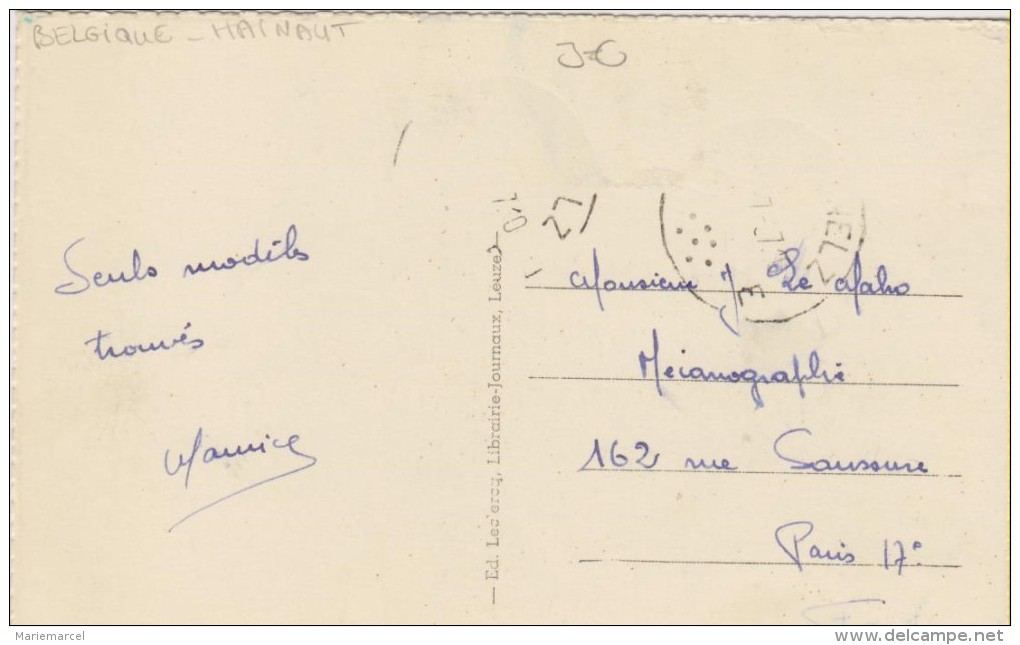 BELGIQUE - HAINAUT
Seuls modèles
trouvés
Maurice
— Ed. Leclercq, Librairie-Journaux, Leuze)—
27
E
Monsieur J Le Maho
Mécanographie
162 rue Saussure
Paris 17e
Mariemarcel
www.delcampe.net